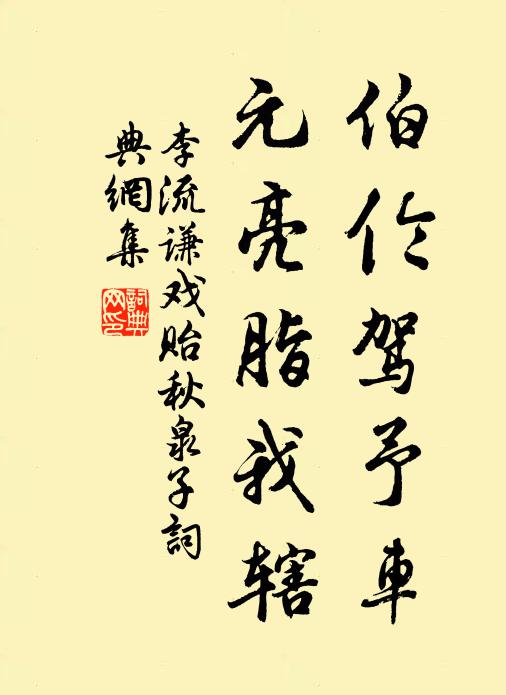 伯伦驾予車
元亮脂我辖
李流谦戏贻秋泉子詞
典網集
詞典網印